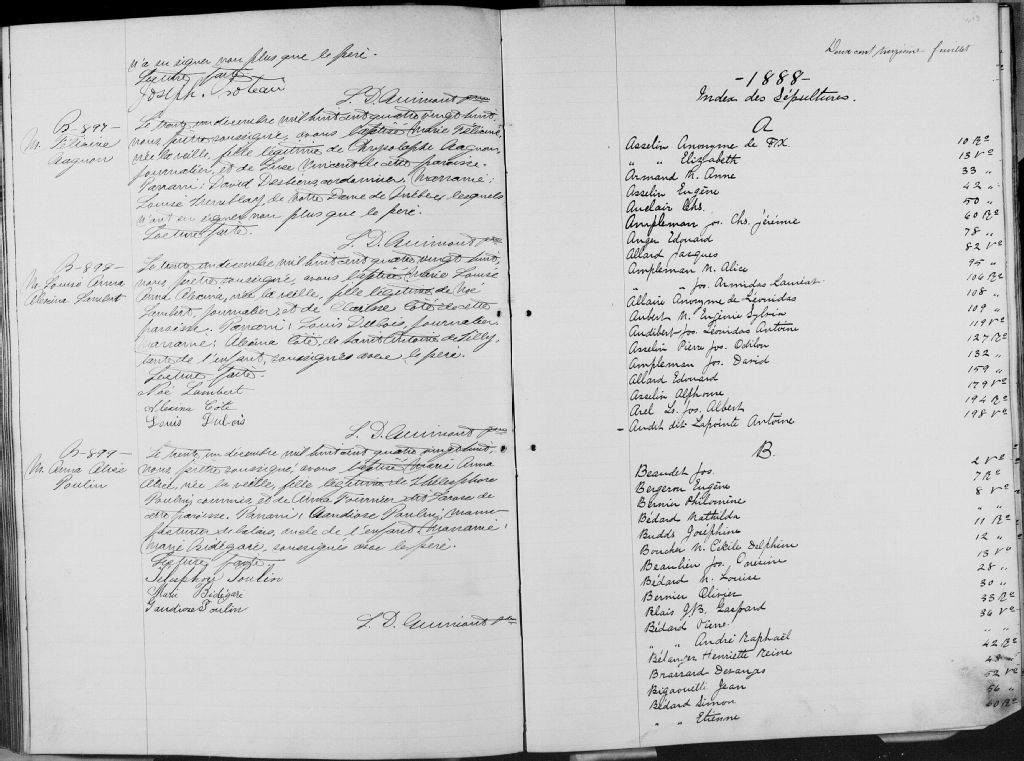 n'a su signer non plus que le père.
Lecture faite
Joseph
L. D. Guimont ptre
B-897-
M. 
Gagnon
Le trente un decembre mil huit cent quatre vingt huit,
nous prêtre soussigné, avons baptisé Marie
née la veille, fille légitime de Chrysologhe Gagnon,
journalier, et de Luse Vincent de cette paroisse.
Parrain: David Desbiens cordonnier, marraine:
Louise Tremblay de Notre Dame de Québec, lesquels
n'ont su signer non plus que le père.
Lecture faite.
L. D. Guimont ptre
B-898-
M. Louise Anna
Alexina Lambert
Le trente un decembre mil huit cent quatre vingt huit,
nous prêtre soussigné, avons baptisé Marie Louise
Anna Alexina, née la veille, fille légitime de Noé
Lambert, journalier, et de Côté de cette
paroisse. Parrain: Louis Dubois, journalier,
marraine: Alexina Côté, de Saint Antoine de Tilly,
tante de l'enfant, soussignés avec le père.
Lecture faite.
Noé Lambert
Alexina Côté
Louis Dubois
L. D. Guimont ptre
B-899-
M. Anna Alice
Poulin
Le trente un decembre mil huit cent quatre vingt huit,
nous prêtre soussigné, avons baptisé Marie Anna
Alice née la veille, fille légitime de Thélesphore
Poulin, commis, et de Anna Fournier, de
paroisse. Parrain: Gaudiose Poulin, manu-
facturier de balais, oncle de l'enfant, marraine:
Marie Bédégaré, soussignés avec le père.
Lecture faite.
Télesphore Poulin
Marie Bédégaré
Gaudiose Poulin
L. D. Guimont ptre
Deux cent treizième feuillet
-1888-
Index des Sépultures.
A
Asselin Anonyme de F.X. 10 Ro
" " Elizabeth 13 Vo
Armand M. Anne 33 "
Asselin Eugène 42 "
Auclair Chs. 50 "
Ampleman Jos. Chs. Jérémie 60 Ro
Anger Edouard 78 "
Allard Jacques 82 Vo
Ampleman M. Alice 95 "
" " Jos. Armidas Lauréat 106 Ro
Allaire Anonyme de Léonidas 108 "
Aubert M. Eugénie Sylvia 109 "
Audibert Jos. Léonidas Antoine 119 Vo
Asselin Pierre Jos. Odilon 127 Ro
Ampleman Jos. David 132 "
Allard Edouard 159 "
Asselin Alphonse 179 Vo
Arel Ls. Jos. Albert 194 Ro
- Audet dit Lapointe Antoine 198 Vo
B.
Beaudet Jos. 2 Vo
Bergeron Eugène 7 Ro
Bernier Philomène 8 Vo
Bédard Mathilda " "
Budds Joséphine 11 Ro
Boucher M. Cécile Delphine 12 "
Beaulieu Jos. 13 Vo
Bédard M. Louise 28 "
Bernier Olivier 30 "
Blais J.B. Gaspard 33 Ro
Bédard Pierre 36 Vo
" " André Raphaël " "
Bélanger Henriette Reine 42 Ro
Brassard Desanges 48 "
Bigaouette Jean 52 Vo
Bédard Simon 56 "
" " Etienne 60 Ro